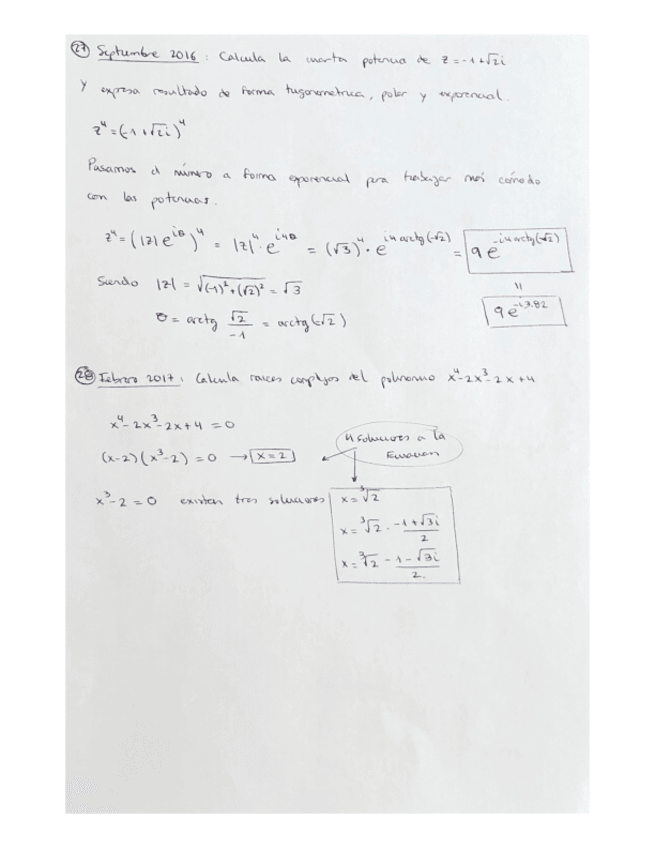 27 Septiembre 2016 : Calcula la cuarta potencia de z = -1+√2i
y expresa resultado de forma trigonometrica, polar y exponencial.
z⁴ = (-1+√2i)⁴
Pasamos el número a forma exponencial para trabajar más cómodo
con las potencias.
z⁴ = (|z| e^{iθ})⁴ = |z|⁴ · e^{i4θ} = (√3)⁴ · e^{i4 arctg(-√2)} = 9 e^{-i4 arctg(√2)}
Siendo |z| = √((-1)²+(√2)²) = √3
=
θ = arctg √2/-1 = arctg(-√2)
9e^{-i3.82}
28 Febrero 2017 : Calcula raices complejas del polinomio x⁴-2x³-2x+4
x⁴-2x³-2x+4 = 0
4 soluciones a la
Ecuacion
(x-2)(x³-2) = 0 → x = 2
x³-2 = 0 existen tres soluciones
x = ³√2
x = ³√2 · -1+√3i/2
x = ³√2 - 1-√3i/2.